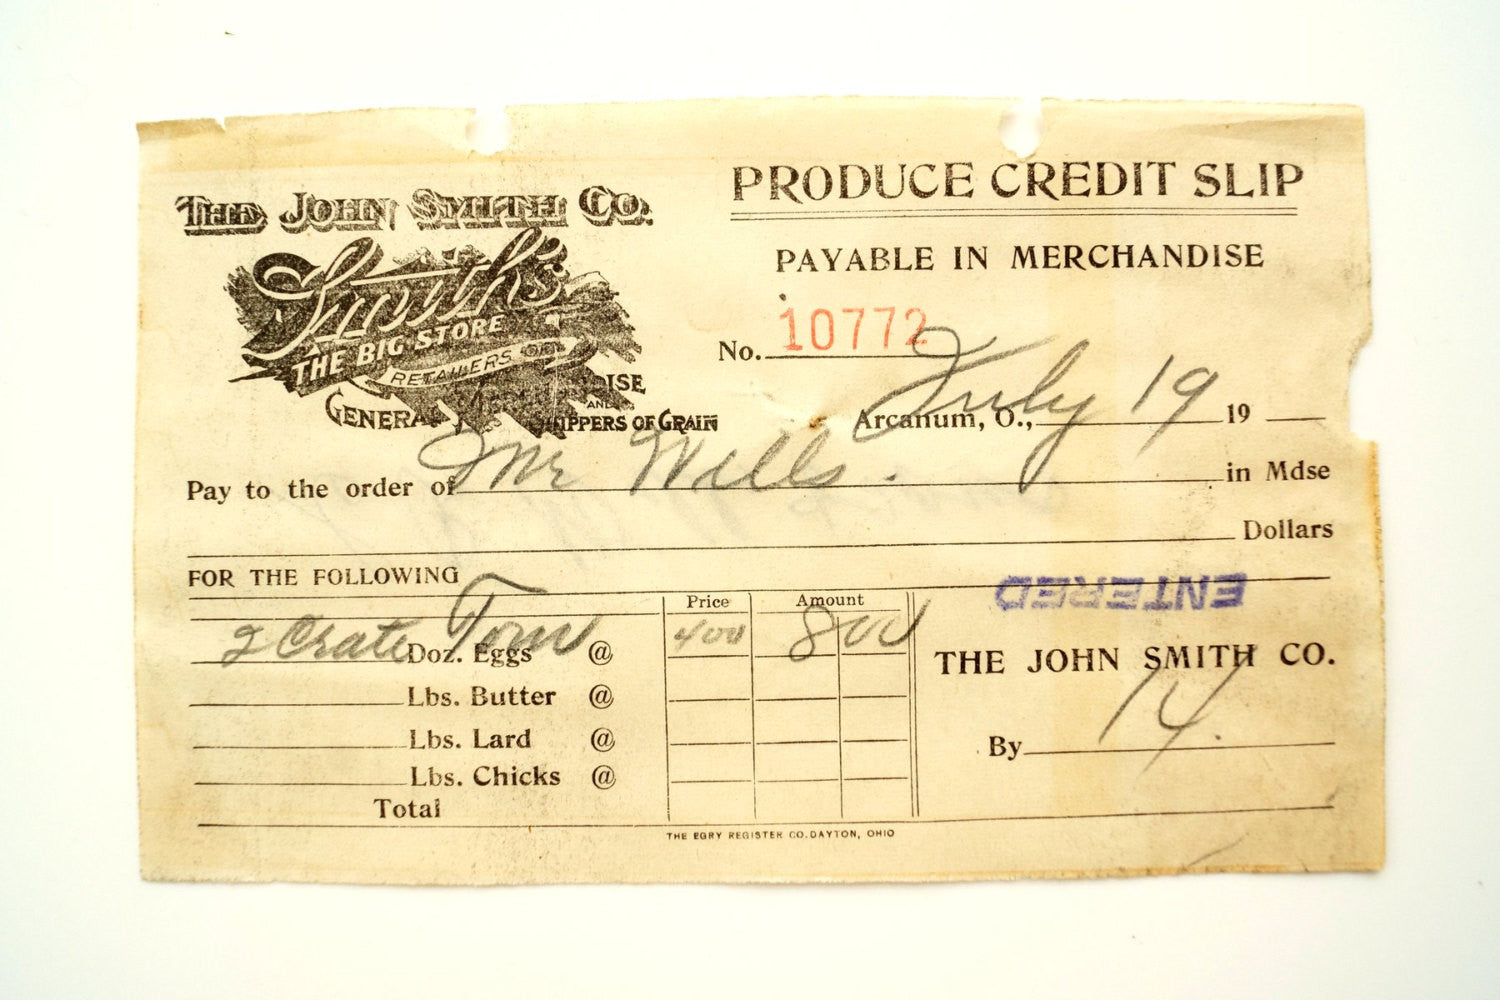 THE JOHN SMITH CO.
Smith's
THE BIG STORE
RETAILERS OF
GENERAL
AND SHIPPERS OF GRAIN
PRODUCE CREDIT SLIP
PAYABLE IN MERCHANDISE
No. 10772
Arcanum, O., July 19 19
Pay to the order of Mr Wills. in Mdse
Dollars
FOR THE FOLLOWING
Price Amount
2 Crate Tom Doz. Eggs @ 400 8 00
Lbs. Butter @
Lbs. Lard @
Lbs. Chicks @
Total
ENTERED
THE JOHN SMITH CO.
By 14.
THE EGRY REGISTER CO. DAYTON, OHIO